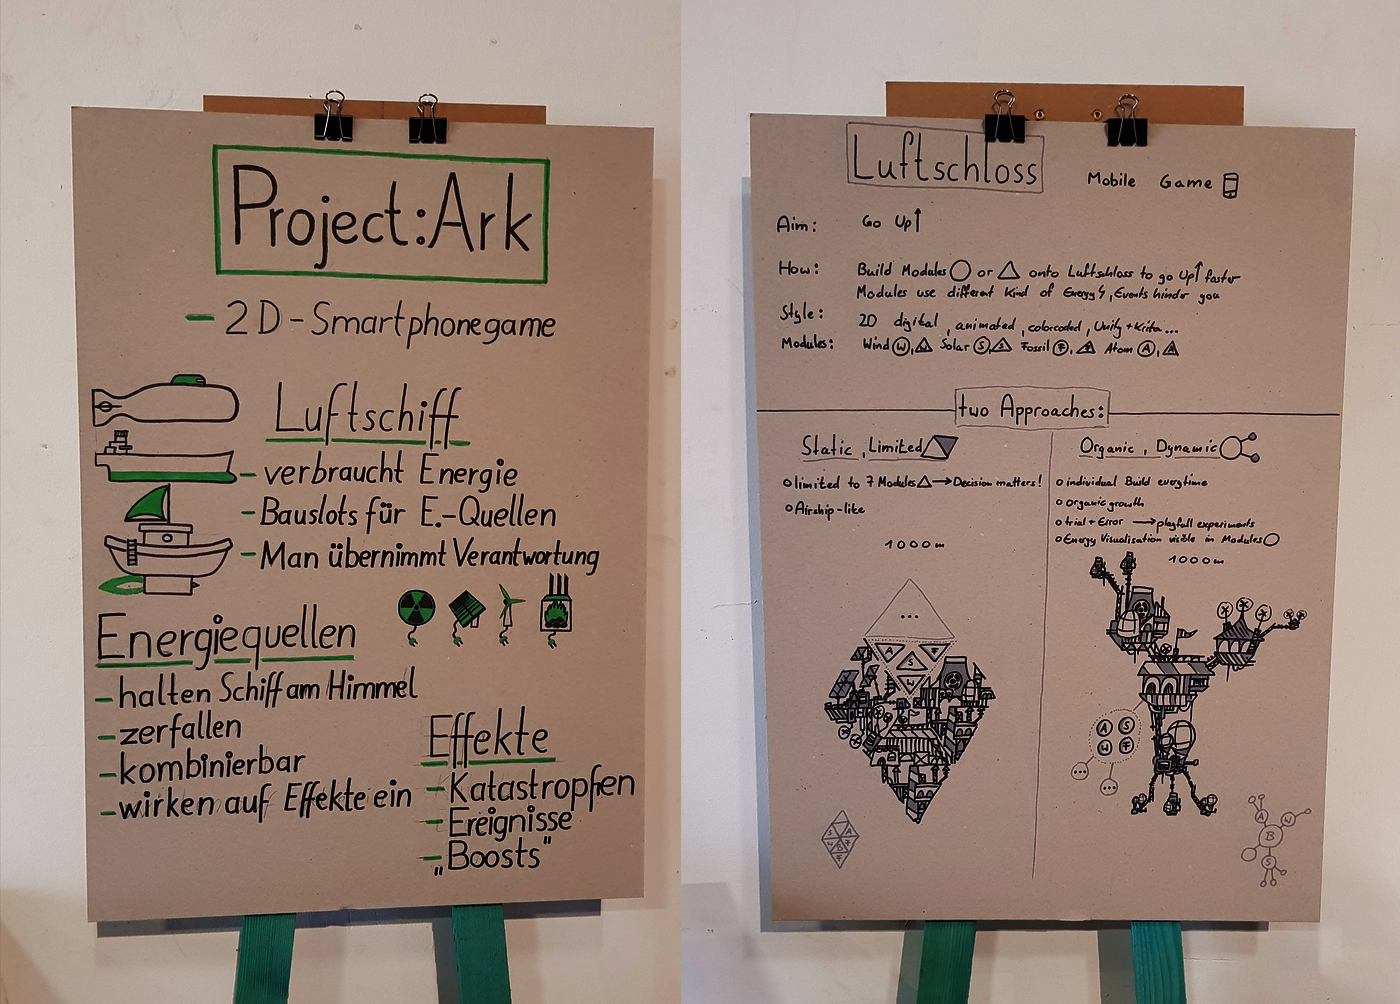 Project:Ark
- 2D-Smartphonegame
Luftschiff
- verbraucht Energie
- Bauslots für E.-Quellen
- Man übernimmt Verantwortung
Energiequellen
- halten Schiff am Himmel
- zerfallen
- kombinierbar
- wirken auf Effekte ein
Effekte
- Katastropfen
- Ereignisse
- „Boosts"
Luftschloss
Mobile Game
Aim: Go Up↑
How: Build Modules ○ or △ onto Luftschloss to go Up↑ faster
Modules use different Kind of Energy, Events hinder you
Style: 2D digital, animated, colorcoded, Unity + Krita...
Modules: Wind W, W Solar S, S Fossil F, F Atom A, A
two Approaches:
Static, Limited
o limited to 7 Modules △ → Decision matters!
o Airship-like
1000m
...
A S F
W
S A
W B F
F
Organic, Dynamic
o individual Build everytime
o organic growth
o trial + Error → playfull experiments
o Energy Visualisation visible in Modules ○
1000m
A S
W F
...
...
A W
B
S